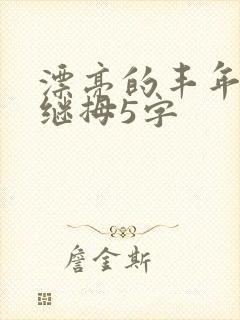 漂亮的丰年
继拇5字
詹金斯